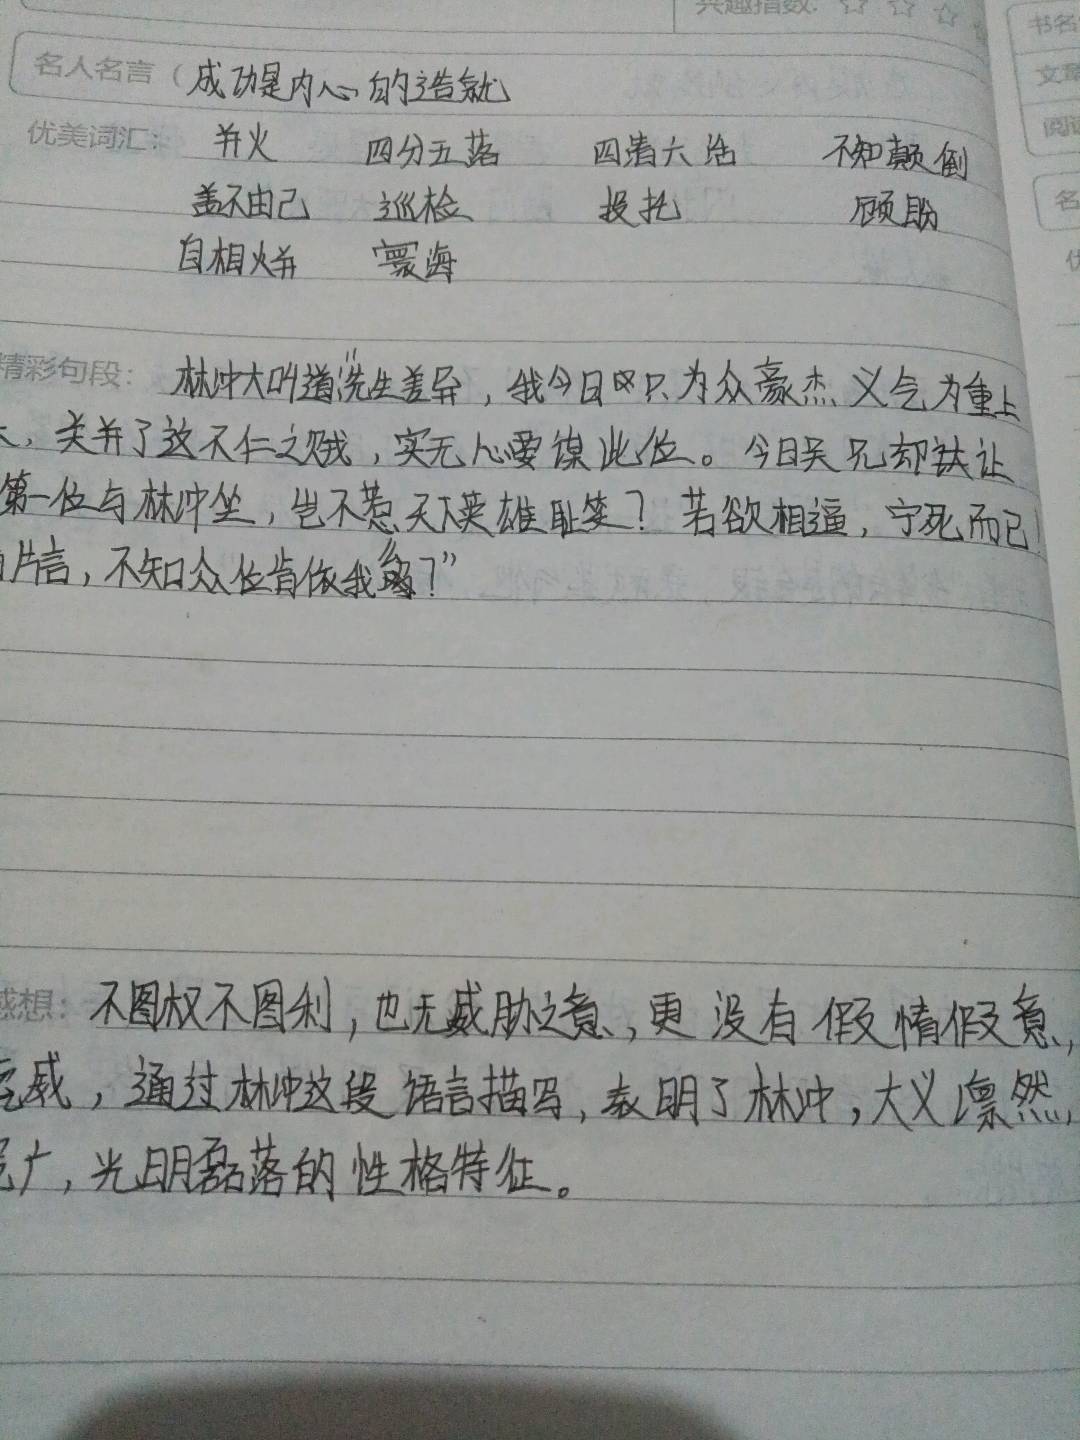 兴趣指数: ☆ ☆ ☆
书名
名人名言（成功是内心的造就
文章
优美词汇: 并火 四分五落 四清六活 不知颠倒
阅读
盖不由己 巡检 投托 顾盼
名
自相火并 寰海
优
精彩句段: 林冲大叫道“先生差异，我今日只为众豪杰义气为重上
，关并了这不仁之贼，实无心要谋此位。今日吴兄却让
第一位与林冲坐，岂不惹天下英雄耻笑？若欲相逼，宁死而已!
片言，不知众位肯依我么？”
感想: 不图权不图利，也无威胁之意，更没有假情假意，
威，通过林冲这段语言描写，表明了林冲，大义凛然，
广，光明磊落的性格特征。